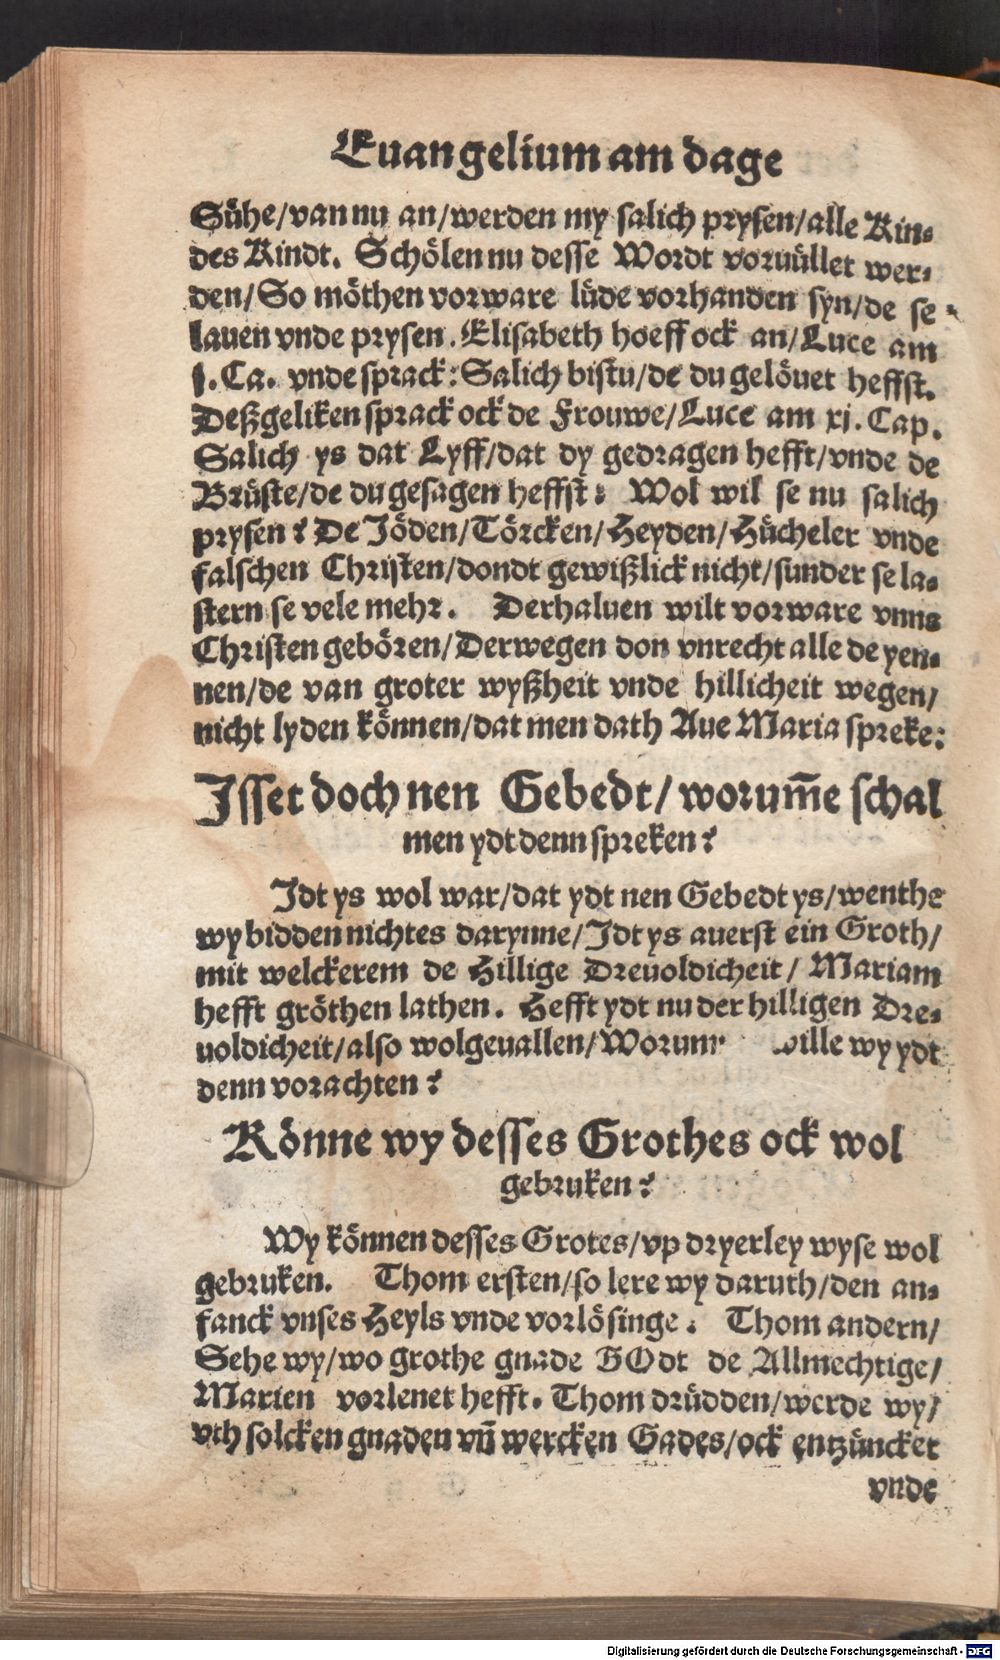 Euangelium am dage
Sühe/van nu an/werden my salich prysen/alle Kin-
des Kindt. Schölen nu desse Wordt vorvüllet wer-
den/So möthen vorware lüde vorhanden syn/de se
lauen vnde prysen. Elisabeth hoeff ock an/Luce am
j. Ca. vnde sprack: Salich bistu/de du gelövet heffst.
Deßgeliken sprack ock de Frouwe/Luce am xj. Cap.
Salich ys dat Lyff/dat dy gedragen hefft/vnde de
Brüste/de du gesagen heffst: Wol wil se nu salich
prysen? De Jöden/Törcken/Heyden/Hücheler vnde
falschen Christen/dondt gewißlick nicht/sunder se la-
stern se vele mehr. Derhaluen wilt vorware vnns
Christen gebören/Derwegen don vnrecht alle de yen-
nen/de van groter wyßheit vnde hillicheit wegen/
nicht lyden können/dat men dath Aue Maria spreke:
Isset doch nen Gebedt/worum̄e schal
men ydt denn spreken?
Idt ys wol war/dat ydt nen Gebedt ys/wenthe
wy bidden nichtes darynne/Idt ys auerst ein Groth/
mit welckerem de Hillige Dreuoldicheit/ Mariam
hefft gröthen lathen. Hefft ydt nu der hilligen Dre-
uoldicheit/also wolgeuallen/ wille wy ydt
denn vorachten?
Könne wy desses Grothes ock wol
gebruken?
Wy können desses Grotes/vp dryerley wyse wol
gebruken. Thom ersten/so lere wy daruth/den an-
fanck vnses Heyls vnde vorlösinge. Thom andern/
Sehe wy/wo grothe gnade GOdt de Allmechtige/
Marien vorlenet hefft. Thom drüdden/werde wy/
vth solcken gnaden vn̄ wercken Gades/ock entzüncket
vnde
Digitalisierung gefördert durch die Deutsche Forschungsgemeinschaft - DFG